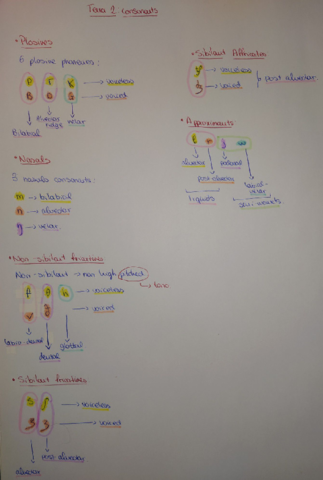 Tema 2 consonants
• Plosives
6 plosive phonemes:
p t k → voiceless
b d g → voiced
Bilabial
velar
• Nasals
3 nasals consonants:
m → bilabial
n → alveolar
ŋ → velar
• Non sibilant fricatives
Non-sibilant → non high pitched
↳ tono
f θ h → voiceless
v ð → voiced
labio-dental
dental
glottal
• Sibilant fricatives
s ʃ → voiceless
z ʒ → voiced
alveolar
post alveolar
• Sibilant Affricates
→ voiceless
→ voiced
post alveolar
• Approximants
alveolar
palatal
post-alveolar
labial-velar
liquids
semi-vowels